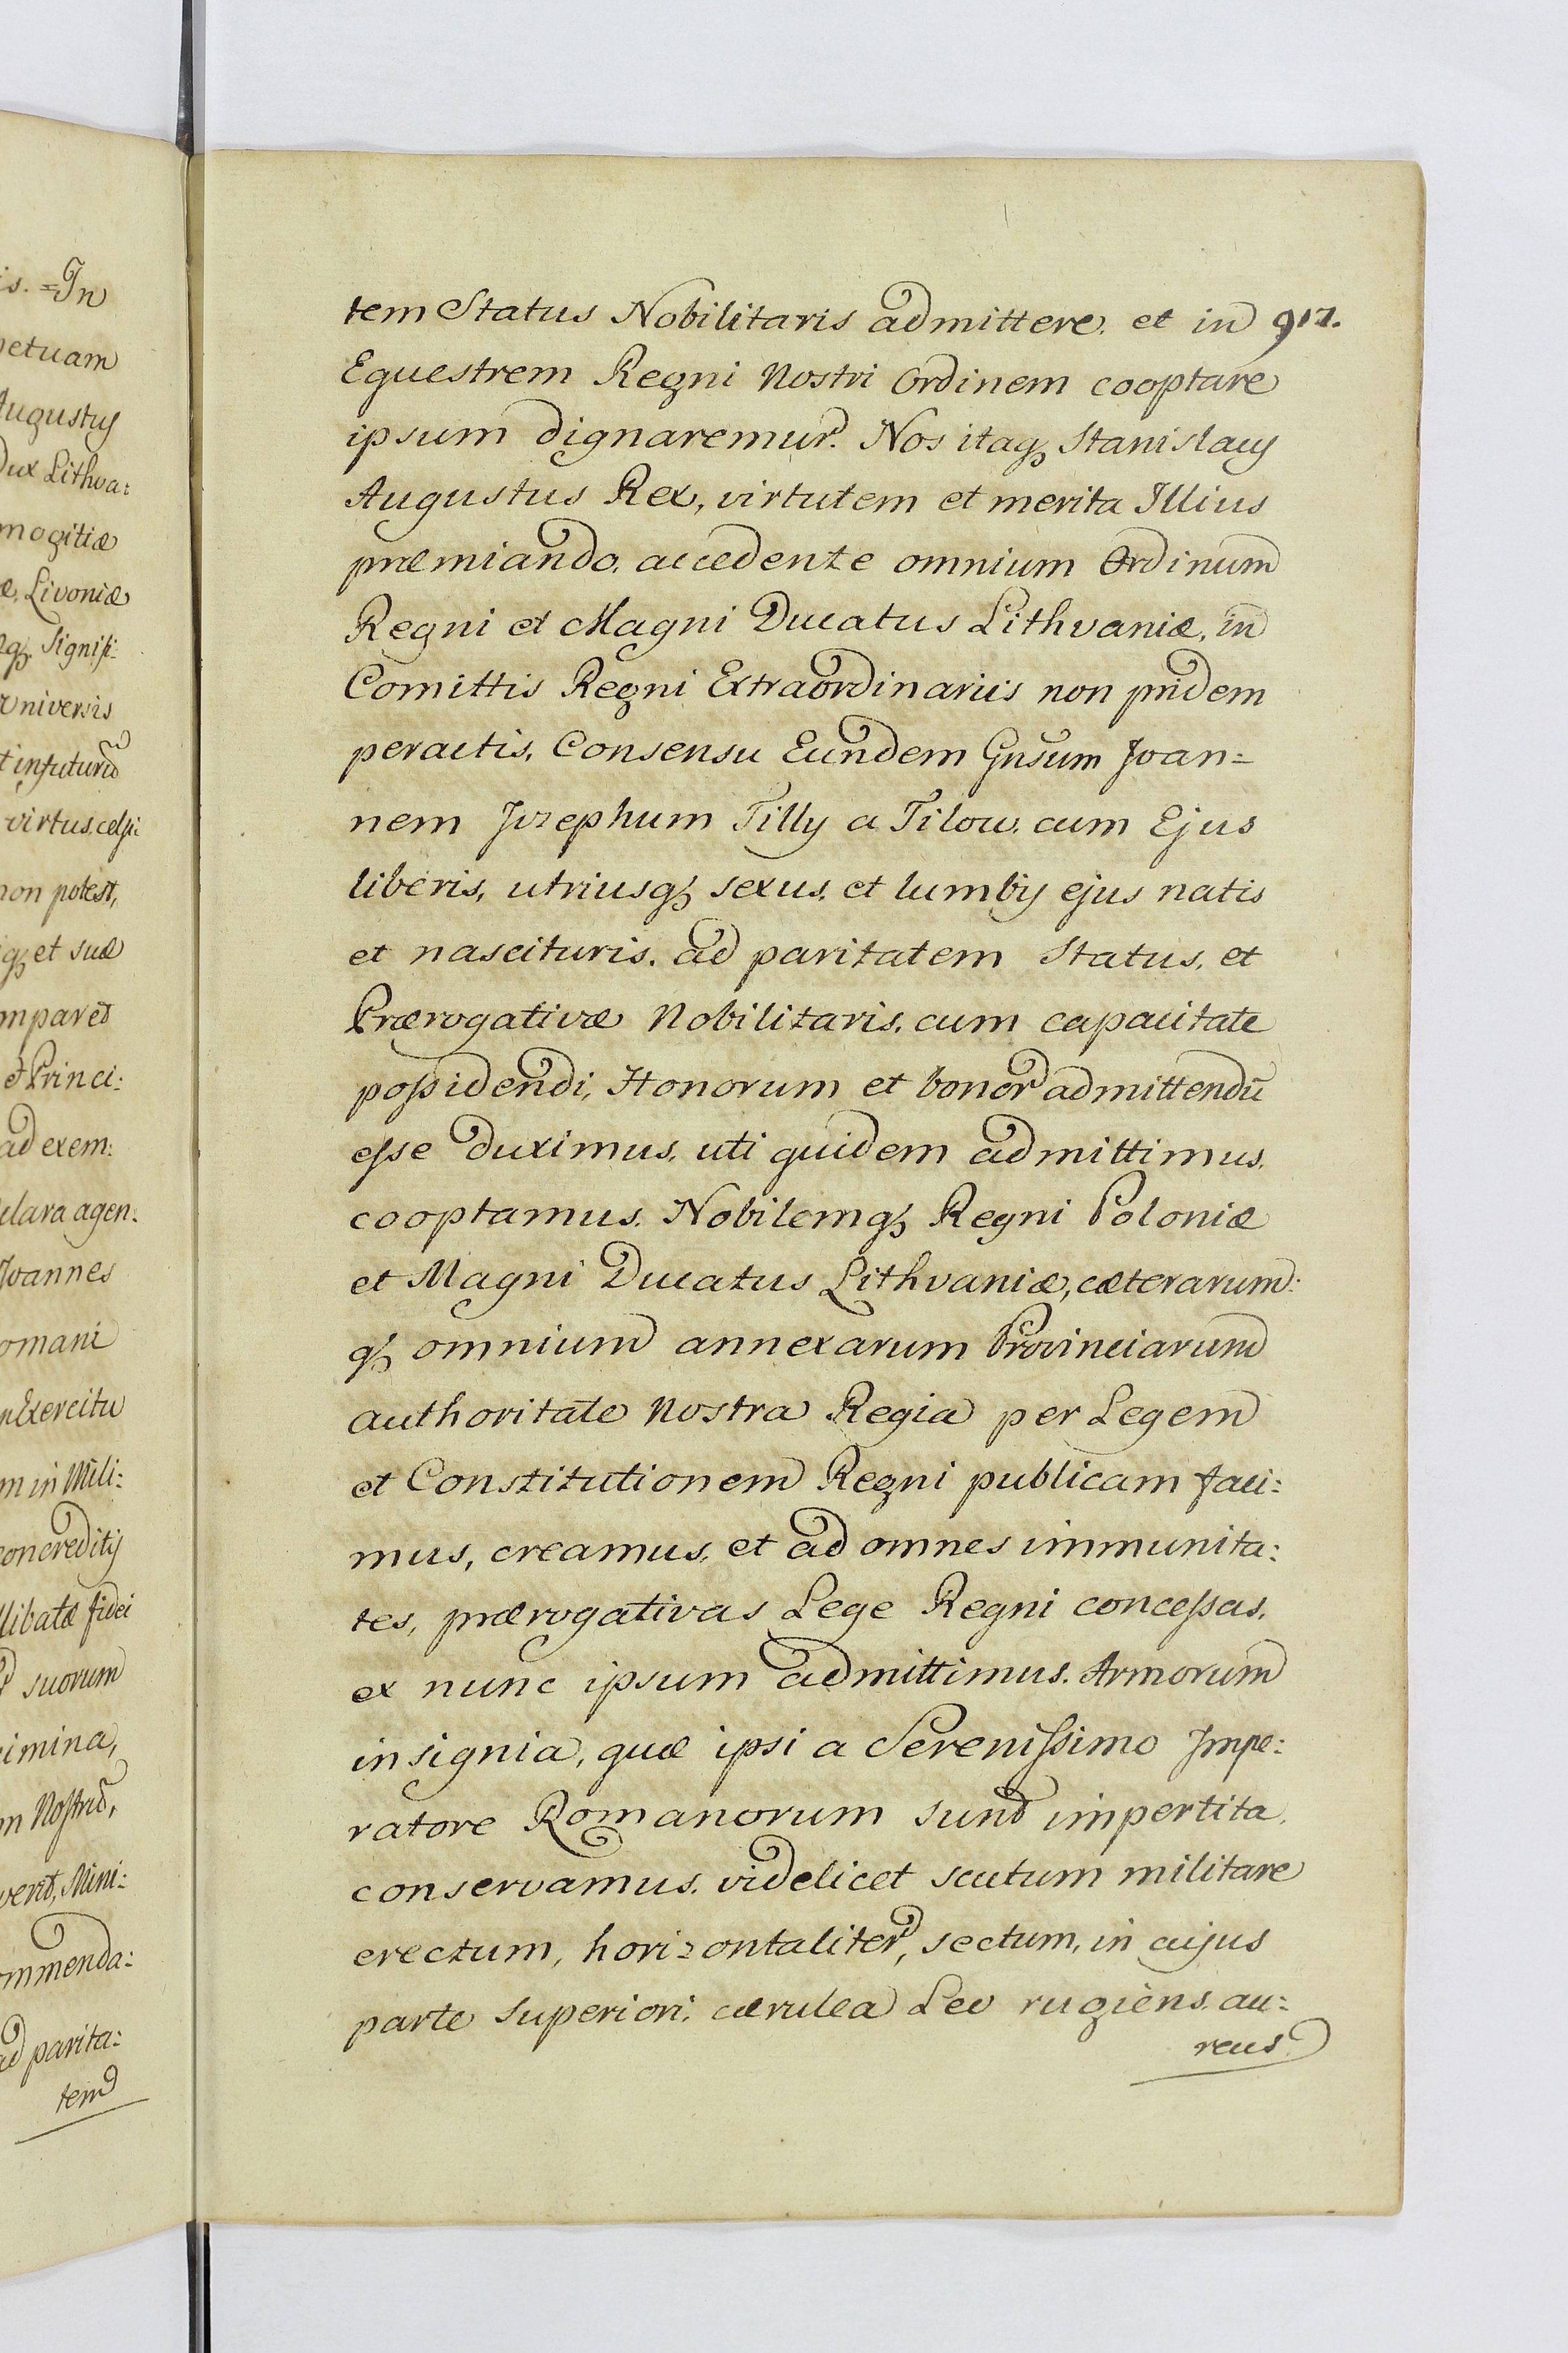 is. = In
etuam
Augustus
Dux Lithva:
mogitiæ
æ, Livoniæ
Signifi:
universis
infuturū
virtus, celsi:
non potest,
q₃ et suæ
mparet
et Princi:
ad exem:
clara agen:
Joannes
omani
Exercitu
m in Mili:
concreditis
llibatæ fidei
suorum
imina,
m Nostrū,
verit, Mini:
ommenda:
ad parita:
tem
tem Status Nobilitaris admittere, et in 917.
Equestrem Regni Nostri Ordinem cooptare
ipsum dignaremur. Nos itaq₃ Stanislaus
Augustus Rex, virtutem et merita Illius
præmiando, accedente omnium Ordinum
Regni et Magni Ducatus Lithvaniæ, in
Comittis Regni Extraordinariis non pridem
peractis, Consensu Eundem Gnsum Joan=
nem Josephum Tilly a Tilow, cum Ejus
liberis, utriusq₃ sexus, et lumbis ejus natis
et nascituris, ad paritatem Status, et
Prærogativæ Nobilitaris, cum capacitate
possidendi, Honorum et bonor admittendū
esse duximus, uti quidem admittimus,
cooptamus, Nobilemq₃ Regni Poloniæ
et Magni Ducatus Lithvaniæ, cæterarum:
q₃ omnium annexarum Provinciarum
authoritate Nostra Regia per Legem
et Constitutionem Regni publicam faci:
mus, creamus, et ad omnes immunita:
tes, prærogativas Lege Regni concessas,
ex nunc ipsum admittimus. Armorum
insignia, quæ ipsi a Serenissimo Impe:
ratore Romanorum sunt impertita,
conservamus, videlicet scutum militare
erectum, horizontaliter, sectum, in cujus
parte superiori, cærulea Leo rugiens, au:
reus